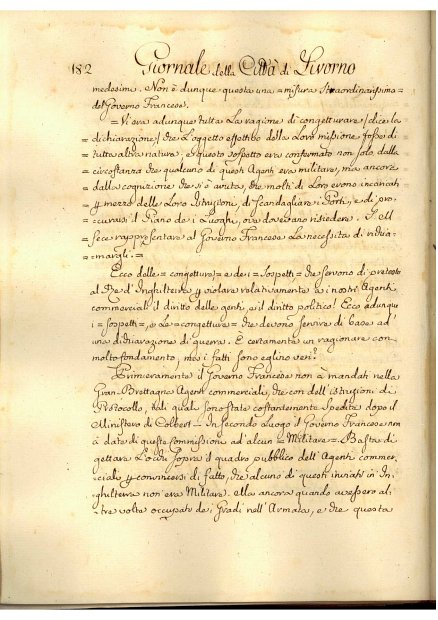 182 Giornale della Città di Livorno
medesimi. Non è dunque questa una = misura straordinarissima =
del Governo Francese.
= Vi era adunque tutta la ragione di congetturare / dice la
= dichiarazione / che l'oggetto effettivo della loro missione fosse di
= tutta altra natura, e questo sospetto era confermato non solo dalla
= circostanza che qualcuno di questi Agenti era militare, ma ancora
= dalla cognizione che si è avuta, che molti di loro erono incaricati
= per mezzo delle loro Istruzioni, di scandagliare i Porti, e di pro=
= curarsi il Piano dei Luoghi, ove dovevano risiedere. S. M.
= fece rappresentare al Governo Francese la necessità di richia=
= margli. =
Ecco delle = congetture = e dei = sospetti = che servono di pretesto
al Re d'Inghilterra per violare relativamente ai nostri Agenti
commerciali il diritto delle genti, e il diritto politico! Ecco adunque
i = sospetti =, e le = congetture = che devono servire di base ad
una dichiarazione di guerra. È certamente un ragionare con
molto fondamento, ma i fatti sono eglino veri?
Primieramente il Governo Francese non à mandati nella
Gran-Brettagna Agenti commerciali, che con dell'istruzioni di
Protocollo, tali quali sono state costantemente spedite dopo il
Ministero di Colbert. In secondo luogo il Governo Francese non
à date di queste commissioni ad alcun = Militare = Basta di
gettare l'occhio sopra il quadro pubblico dell'Agenti commer=
ciali per convincersi di fatto, che alcuno di questi inviati in In=
ghilterra non era Militare. ella ancora quando avessero al=
tre volte occupati dei Gradi nell'Armata, e che questa